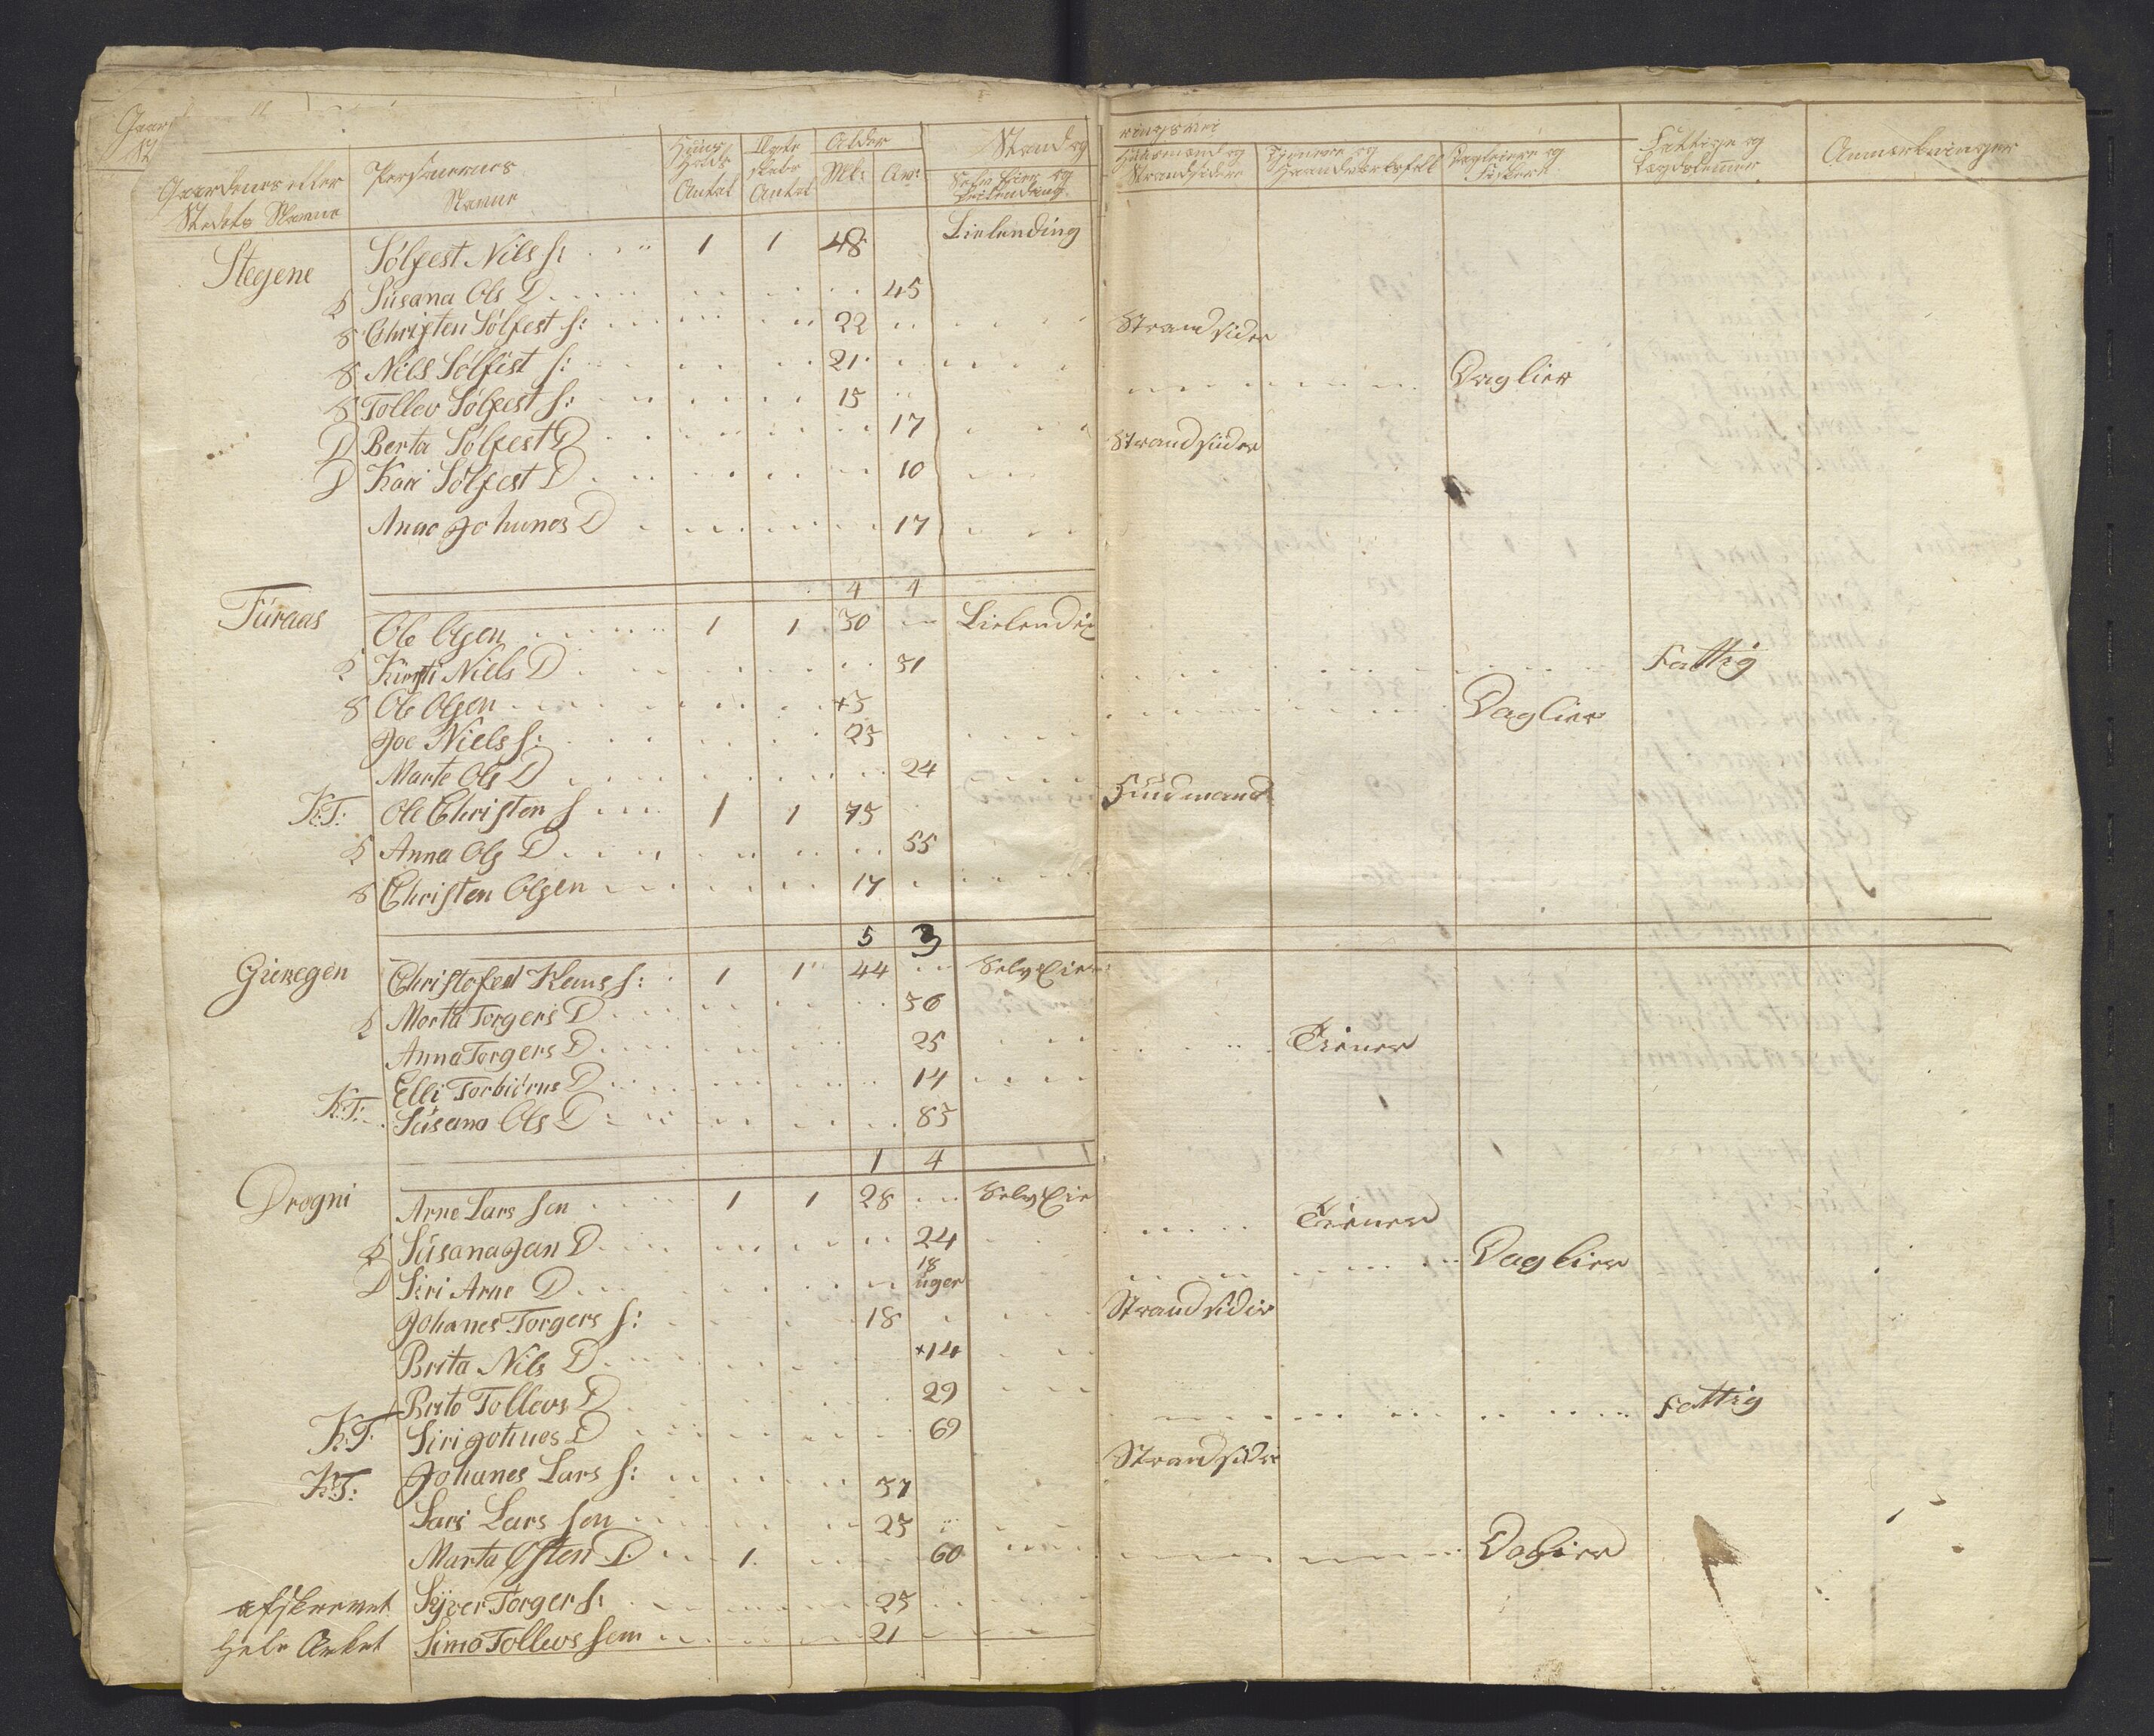 Gaardenes eller Stedets Navne | Personernes Navne | Huus Holds Antal | Ægte skabs Antal | Alder Mk: Qv: | Stand og Næringsvei: Selv Eier og Leilending | Huusmænd og Strandsidere | Tjenere og Haandværksfolk | Dagleiere og Fiskere | Fattige og Lægdslemmer | Anmærkninger
Stegene Sólfest Nils S: 1 1 48 Lielending
K Súsana Ols D 45
S Christen Sólfest S: 22 Strandsider
S Nils Sólfist S: 21 Daglier
S Tollev Sólfest S: 15
D Berta Sólfest D 17 Strandsider
D Kari Sólfest D 10
Anne Johanes D 17
4 4
Túraas Ole Olsen 1 1 50 Lielending
K Kirsti Niels D 51 Fattig
S Ole Olsen +5 Daglier
Joe Niels S: 25
Marte Ols D 24
K:T: Ole Christen S 1 1 75 Húúsmand
K Anna Ols D 55
S Christen Olsen 17
5 3
Gieregen Christofed Klaus S: 1 1 44 Selv Eier
K Marta Torgers D 56
Anna Torgers D 25 Tiener
Elli Torbiórns D 14
K:T: Súsana Ols D 85
1 4
Drogni Arne Lars Son 1 1 28 Selv Eier
K Súsana Jan D 24 Tiener
D Siri Arne D 18 úger Daglier
Johanes Torgers S: 18 Strandsider
Brita Nils D +14
Brita Tollevs D 29
K:T: Siri Johnes D 69 Fattig
K:T: Johanes Lars S: 57 Strandsider
Lars Lars Son 25
Marta Osten D 1 60 Daglier
afskrevet Syver Torger S: 25
Hele Arket Simo Tollevs Son 21